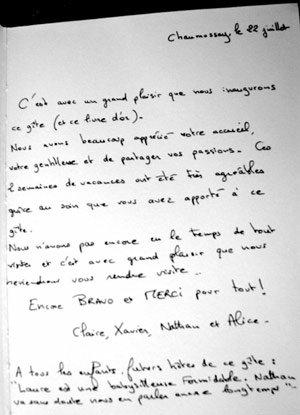 Chaumossay, le 22 juillet
C'est avec un grand plaisir que nous inaugurons
ce gîte (et ce livre d'or).
Nous avons beaucoup apprécié votre accueil,
votre gentillesse et de partager vos passions. Ces
2 semaines de vacances ont été très agréables
grâce au soin que vous avez apporté à ce
gîte.
Nous n'avons pas encore eu le temps de tout
visiter et c'est avec grand plaisir que nous
reviendrons vous rendre visite...
Encore BRAVO et MERCI pour tout!
Claire, Xavier, Nathan et Alice.
A tous les enfants, futurs hôtes de ce gîte :
"Laure est une babysitteuse formidable. Nathan
va sans doute nous en parler encore longtemps"